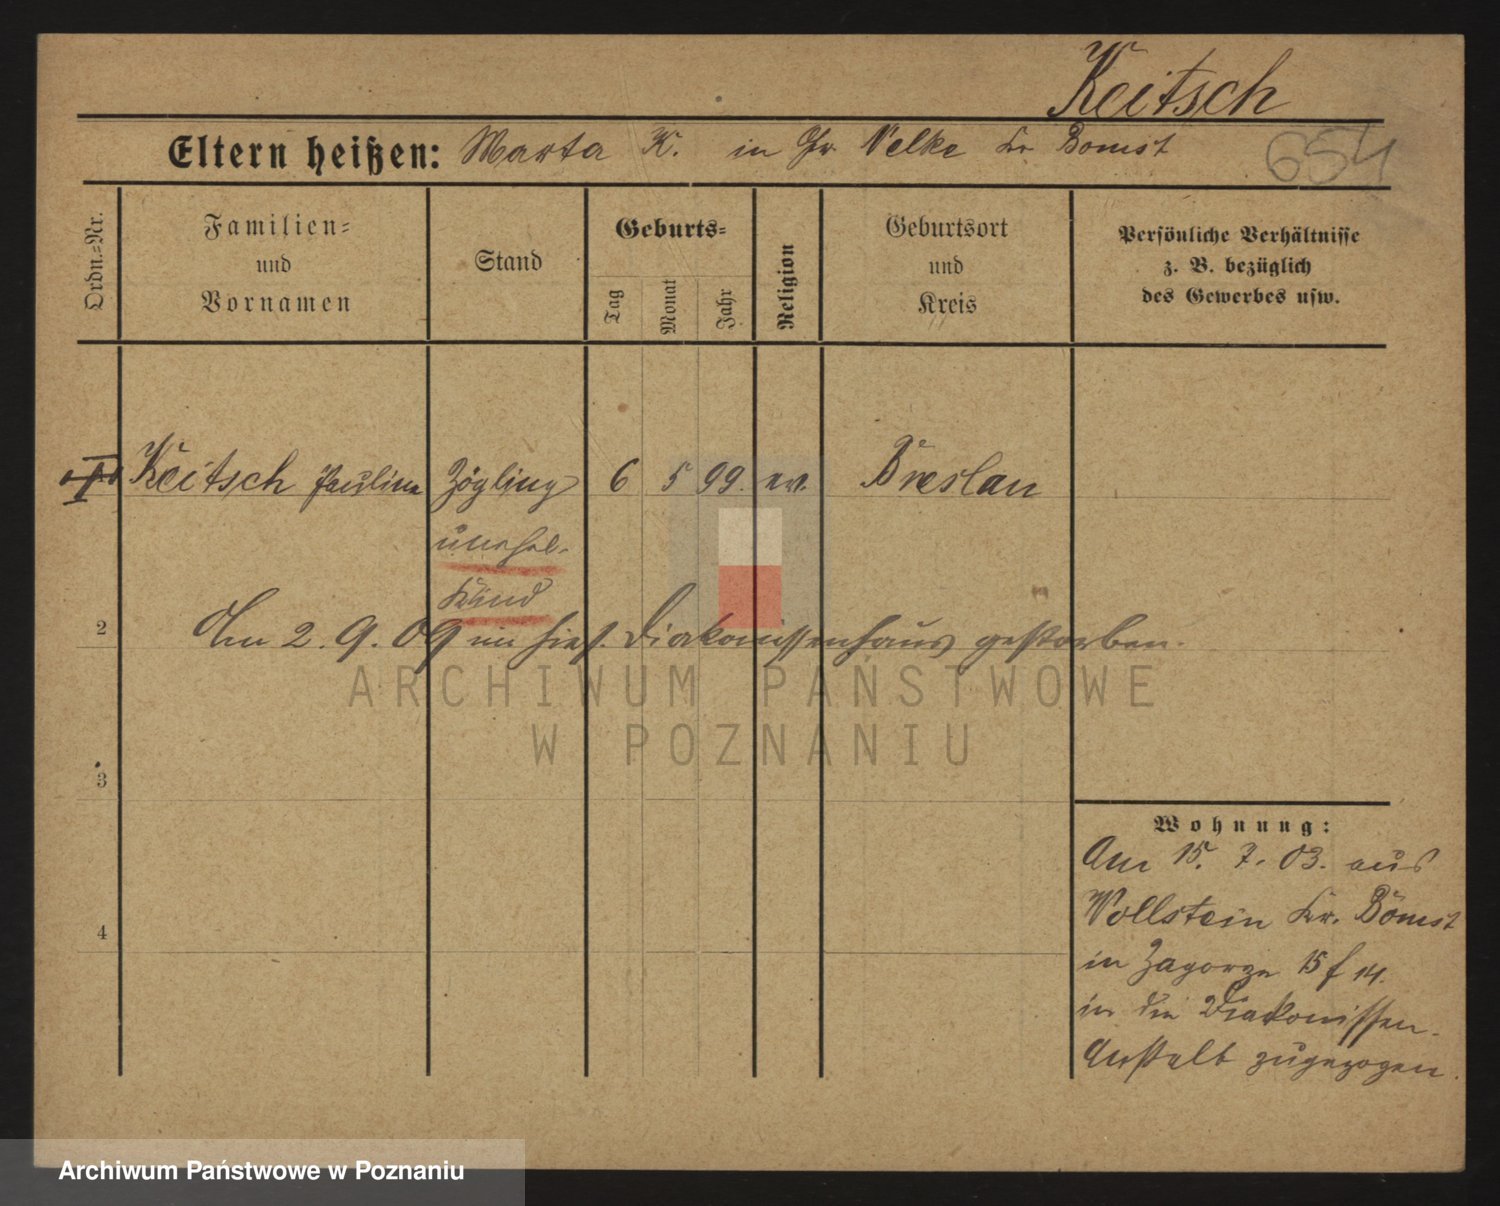 Keitsch
654
Eltern heißen: Marta K. in Gr. Nelke Kr. Bomst
Ordn.-Nr.
Familien-
und
Vornamen
Stand
Geburts-
Tag
Monat
Jahr
Religion
Geburtsort
und
Kreis
Persönliche Verhältnisse
z. B. bezüglich
des Gewerbes usw.
Keitsch Pauline Zögling 6 5 99. ev. Breslau
unehel.
Kind
2
Am 2. 9. 09 im hies. Diakonissenhaus gestorben.
3
4
Wohnung:
Am 15. 7. 03. aus
Wollstein Kr. Bomst
in Zagorze 15 f 14.
in die Diakonissen-
Anstalt zugezogen.
ARCHIWUM PAŃSTWOWE
W POZNANIU
Archiwum Państwowe w Poznaniu